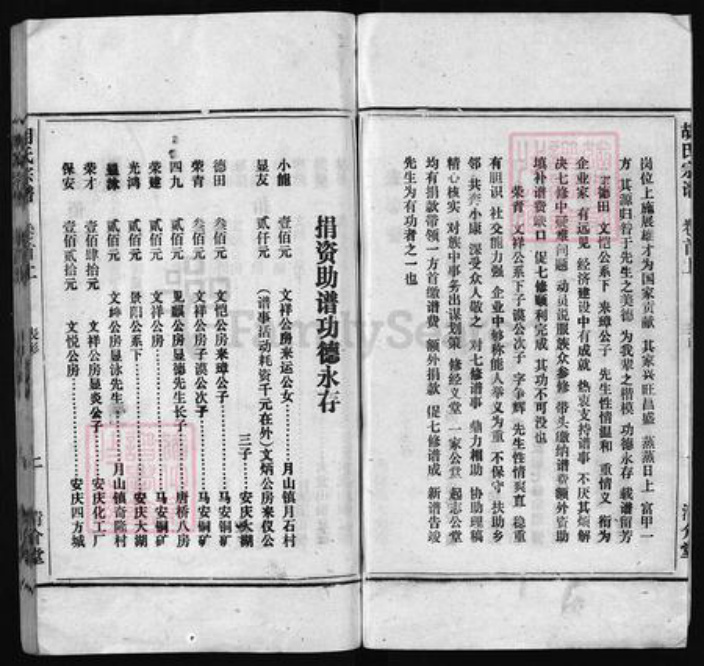 胡氏宗谱 卷首上
清介堂
岗位上施展雄才为国家贡献 其家兴旺昌盛 蒸蒸日上 富甲一
方 其源归咎于先生之美德 为我辈之楷模 功德永存 载谱留芳
德田 文恺公系下 来璋公子 先生性情温和 重情义 衔为
企业家 有远见 经济建设中有成就 热衷支持谱事 不厌其烦解
决七修中疑难问题 动员说服族众参修 带头缴纳谱费额外资助
填补谱费缺口 促七修顺利完成 其功不可没也
荣青 文祥公系下子谟公次子 字争辉 先生性情爽直 稳重
有胆识 社交能力强 企业中够称能人举义为重 不保守 扶助乡
邻 共奔小康 深受众人敬爱 对七修谱事 鼎力相助 协助理稿
精心核实 对族中事务出谋划策 修经义堂 一家公赏 起志公堂
均有捐款带领一方首缴谱费 额外捐款 促七修谱成 新谱告竣
先生为有功者之一也
捐资助谱功德永存
小能 壹佰元 文祥公房来运公女………月山镇月石村
显友 贰仟元 (谱事活动耗资千元在外)文炳公房来仪公
三子………安庆大湖
德田 叁佰元 文恺公房来璋公子………马安铜矿
荣青 叁佰元 文祥公房子谟公次子………马安铜矿
四九 贰佰元 见麒公房显德先生长子………唐桥八房
荣建 贰佰元 文祥公房………马安铜矿
光鸿 贰佰元 景阳公系下………安庆大湖
显泳 贰佰元 文坤公房显泳先生………月山镇奇隆村
荣才 壹佰肆拾元 文祥公房显炎公子………安庆化工厂
保安 壹佰贰拾元 文悦公房………安庆四方城
胡氏宗谱 卷首上
二
清介堂